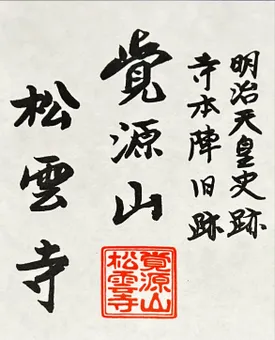 明治天皇史跡
寺本陣旧跡
覚源山
松雲寺
覚源山
松雲寺